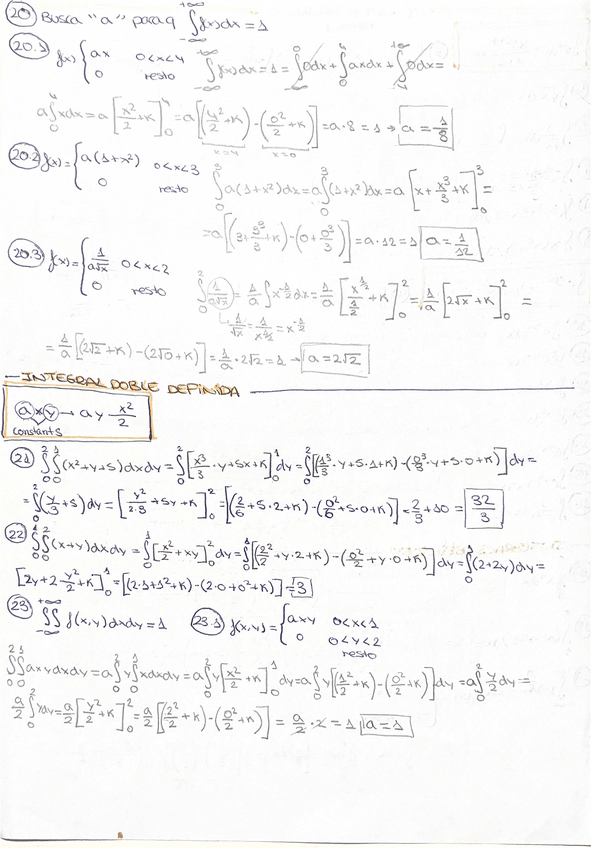 20 Busca "a" para q ∫_{-∞}^{+∞} f(x)dx = 1
20.1 f(x) { ax 0<x<4 ; 0 resto ∫_{-∞}^{+∞} f(x)dx = 1 = ∫_{-∞}^{0} 0dx + ∫_0^4 axdx + ∫_4^{+∞} 0dx =
a∫_0^4 xdx = a[x²/2 + K]_0^4 = a[(4²/2 + K) - (0²/2 + K)] = a·8 = 1 → a = 1/8
x=4 x=0
20.2 f(x) = { a(1+x²) 0<x<3 ; 0 resto ∫_0^3 a(1+x²)dx = a∫_0^3 (1+x²)dx = a[x + x³/3 + K]_0^3 =
= a[(3 + 3³/3 + K) - (0 + 0³/3)] = a·12 = 1 a = 1/12
20.3 f(x) = { 1/(a√x) 0<x<2 ; 0 resto ∫_0^2 1/(a√x) = 1/a ∫ x^{-1/2} dx = 1/a [x^{1/2}/(1/2) + K]_0^2 = 1/a [2√x + K]_0^2 =
1/√x = 1/x^{1/2} = x^{-1/2}
= 1/a [(2√2 + K) - (2√0 + K)] = 1/a · 2√2 = 1 → a = 2√2
INTEGRAL DOBLE DEFINIDA
a x y → a y x²/2
constants
21 ∫_0^2 ∫_0^1 (x² + y + 5) dxdy = ∫_0^2 [x³/3 · y + 5x + K]_0^1 dy = ∫_0^2 [(1³/3 · y + 5·1 + K) - (0³/3 · y + 5·0 + K)] dy =
= ∫_0^2 (y/3 + 5) dy = [y²/2·3 + 5y + K]_0^2 = [(2²/6 + 5·2 + K) - (0²/6 + 5·0 + K)] = 2/3 + 10 = 32/3
22 ∫_0^1 ∫_0^2 (x+y) dxdy = ∫_0^1 [x²/2 + xy]_0^2 dy = ∫_0^1 [(2²/2 + y·2 + K) - (0²/2 + y·0 + K)] dy = ∫_0^1 (2+2y) dy =
[2y + 2·y²/2 + K]_0^1 = [(2·1 + 1² + K) - (2·0 + 0² + K)] = 3
23 ∫∫_{-∞}^{+∞} f(x,y) dxdy = 1 23.1 f(x,y) = { axy 0<x<1 ; 0 0<y<2
resto
∫_0^2 ∫_0^1 axy dxdy = a∫_0^2 y ∫_0^1 xdxdy = a∫_0^2 y [x²/2 + K]_0^1 dy = a∫_0^2 y [(1²/2 + K) - (0²/2 + K)] dy = a∫_0^2 y/2 dy =
a/2 ∫_0^2 ydy = a/2 [y²/2 + K]_0^2 = a/2 [(2²/2 + K) - (0²/2 + K)] = a/2 · 2 = 1 a = 1